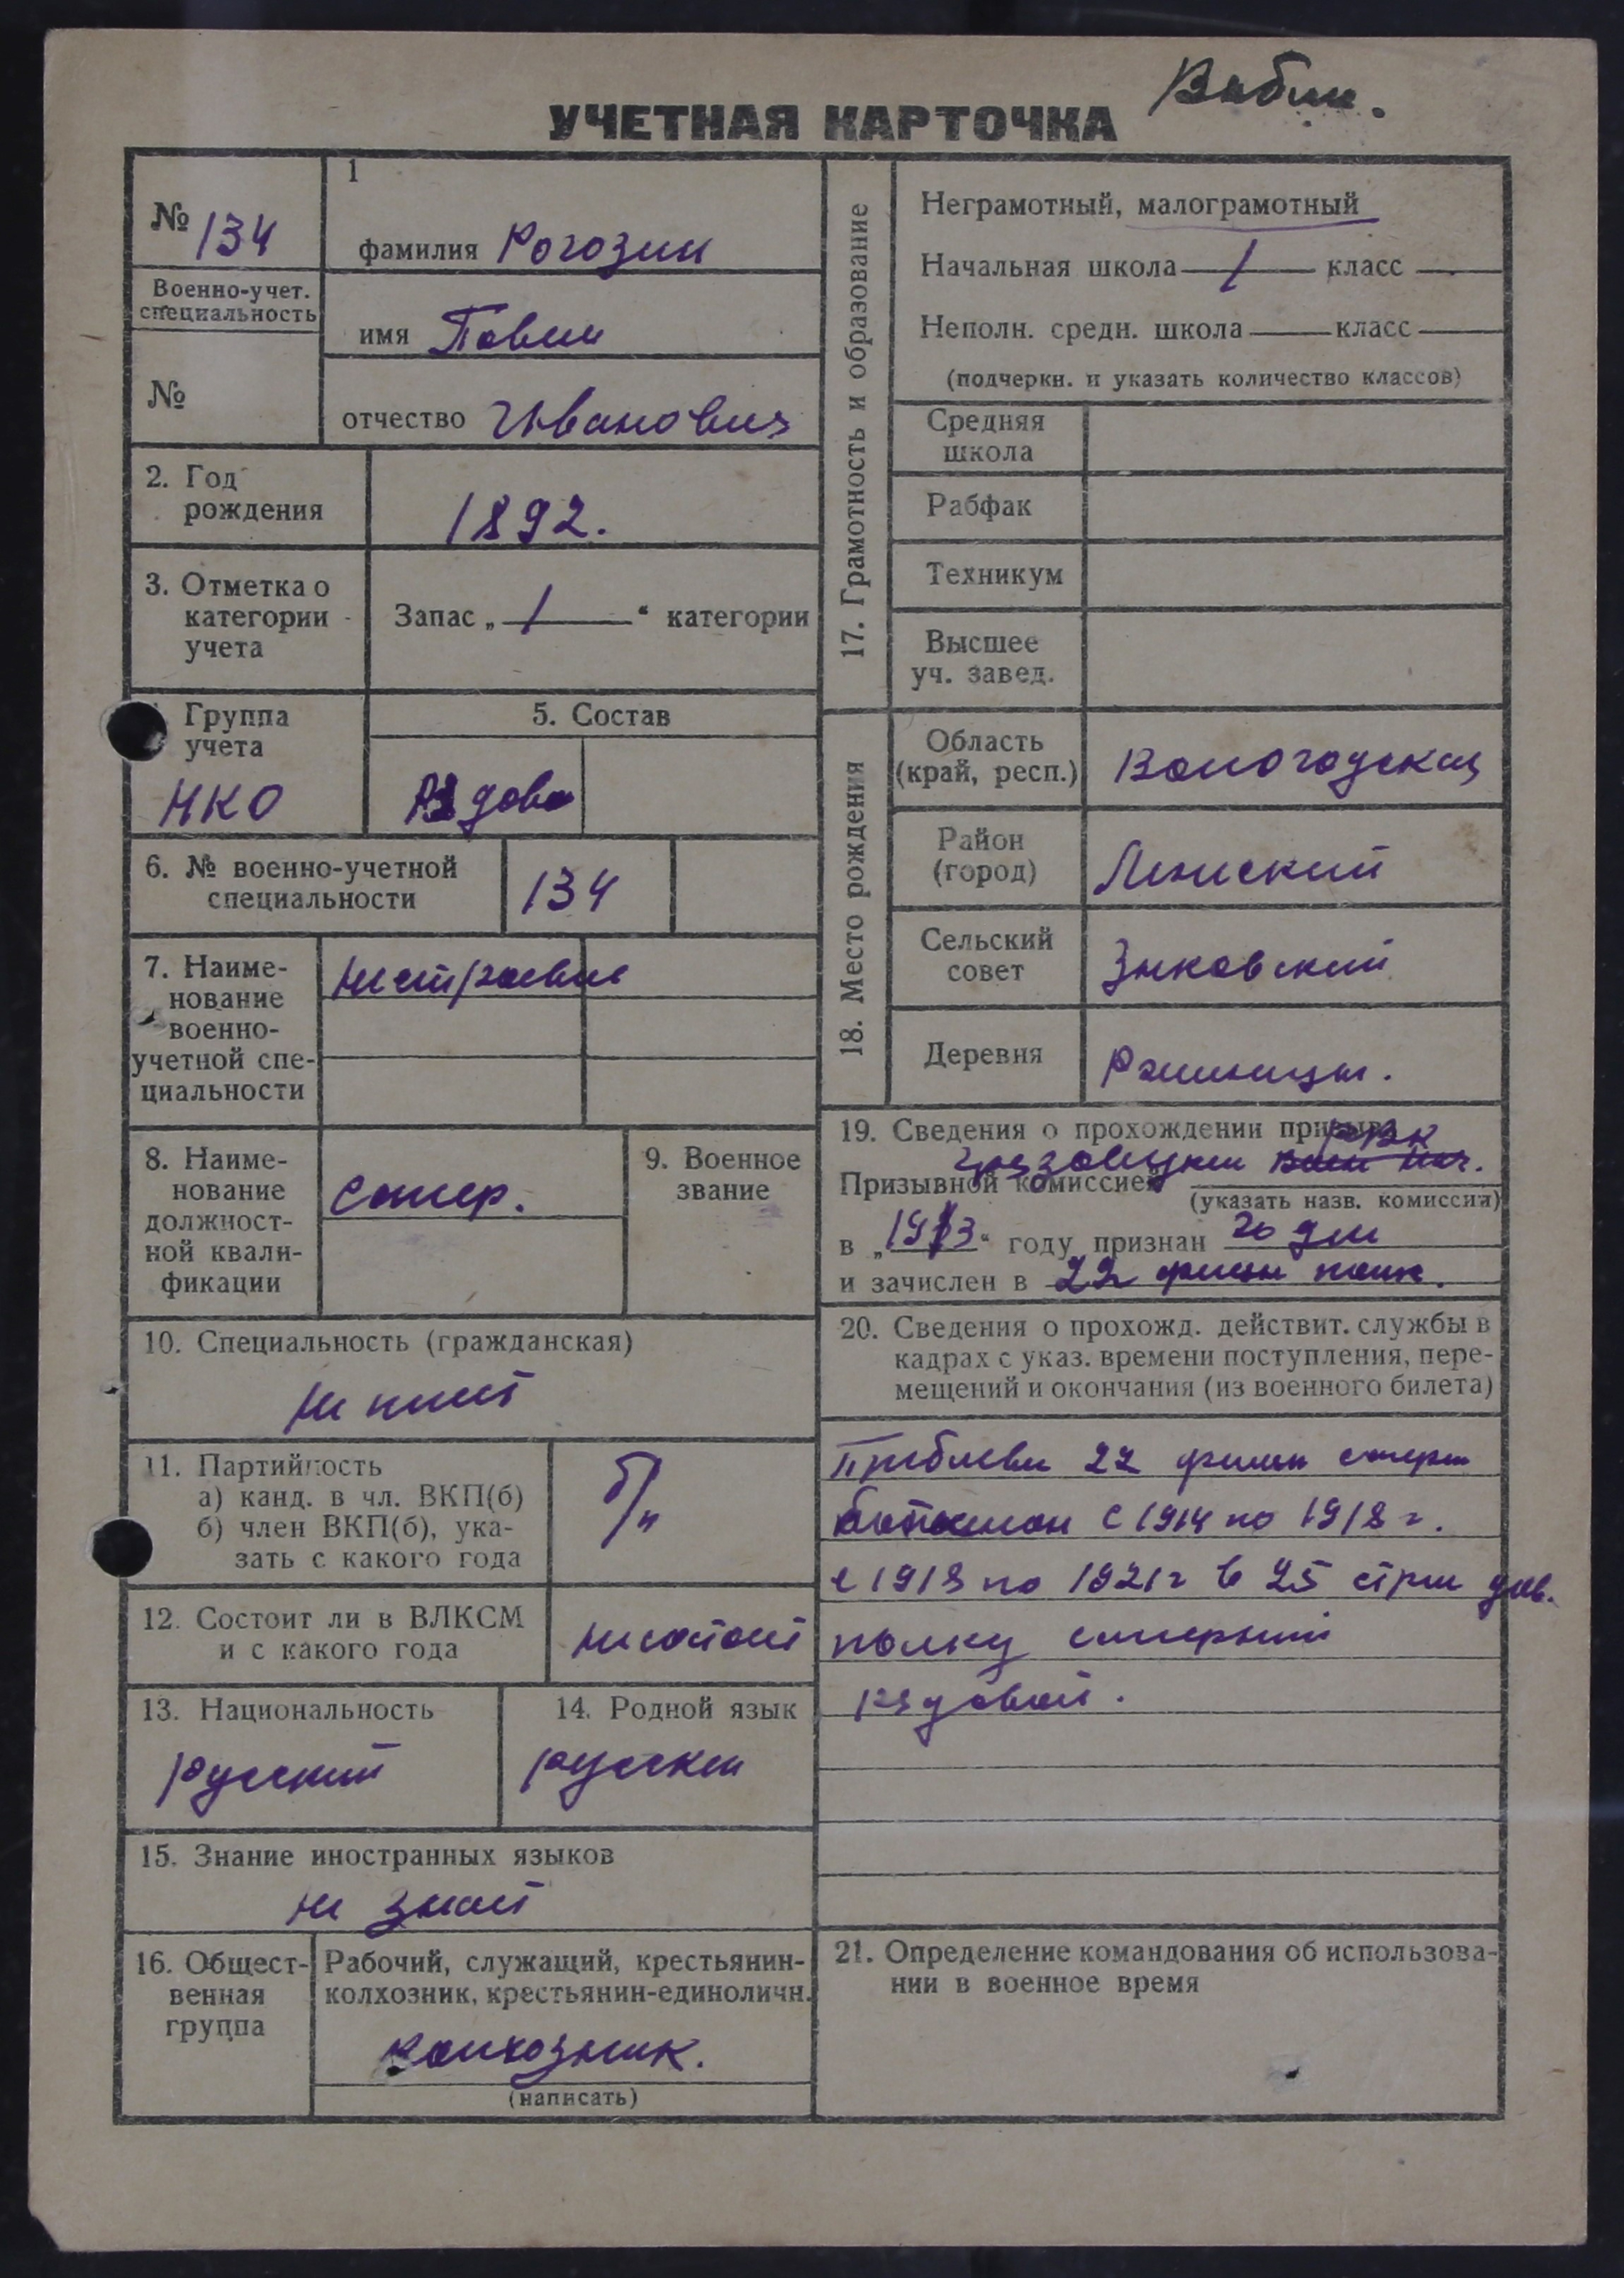 УЧЕТНАЯ КАРТОЧКА
№ 134
Военно-учет.
специальность
№
1
фамилия Рогозин
имя Павел
отчество Иванович
2. Год
рождения
1892.
3. Отметка о
категории
учета
Запас „ 1 “ категории
Группа
учета
НКО
5. Состав
6. № военно-учетной
специальности
134
7. Наиме-
нование
военно-
учетной спе-
циальности
8. Наиме-
нование
должност-
ной квали-
фикации
сапер.
9. Военное
звание
10. Специальность (гражданская)
не имеет
11. Партийность
а) канд. в чл. ВКП(б)
б) член ВКП(б), ука-
зать с какого года
б/п
12. Состоит ли в ВЛКСМ
и с какого года
не состоит
13. Национальность
русский
14. Родной язык
русский
15. Знание иностранных языков
не знает
16. Общест-
венная
группа
Рабочий, служащий, крестьянин-
колхозник, крестьянин-единоличн.
колхозник.
(написать)
17. Грамотность и образование
Неграмотный, малограмотный
Начальная школа 1 класс
Неполн. средн. школа класс
(подчеркн. и указать количество классов)
Средняя
школа
Рабфак
Техникум
Высшее
уч. завед.
18. Место рождения
Область
(край, респ.)
Вологодская
Район
(город)
Сельский
совет
Зыковский
Деревня
19. Сведения о прохождении призыва
РВК
Грязовецким
Призывной комиссией
(указать назв. комиссии)
в „1913“ году признан годен
и зачислен в 22 полк.
20. Сведения о прохожд. действит. службы в
кадрах с указ. времени поступления, пере-
мещений и окончания (из военного билета)
22 саперн
батальон с 1914 по 1918 г.
с 1918 по 1921 г в 25 стрел див.
полку саперный
ездовой.
21. Определение командования об использова-
нии в военное время